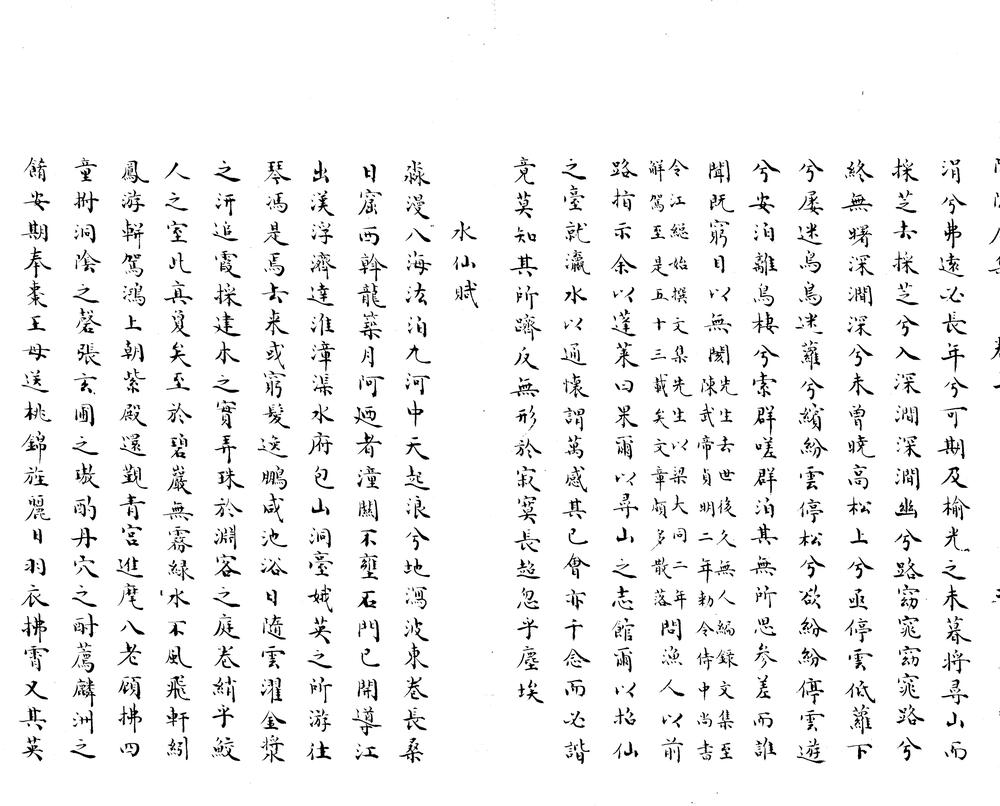 涓兮弗遠必長年兮可期及榆光之未暮將尋山而
採芝去採芝兮入深澗深澗幽兮路窈窕窈窕路兮
終無曙深澗深兮未曾曉高松上兮亟停雲低蘿下
兮屢迷鳥鳥迷蘿兮繽紛雲停松兮欲紛紛停雲遊
兮安泊離鳥棲兮索群嗟群泊其無所思參差而誰
聞既窮日以無閡
先生去世後久無人編錄文集至
陳武帝貞明二年勑令侍中尚書
令江總始撰文集先生以梁大同二年
解駕至是五十三載矣文章頗多散落
問漁人以前
路指示余以蓬萊曰果爾以尋山之志館爾以招仙
之臺就瀛水以通懷謂萬感其已會亦千念而必諧
竟莫知其所躋反無形於寂寞長超忽乎塵埃
水仙賦
淼漫八海汯泊九河中天起浪兮地瀉波東卷長桑
日窟西斡龍築月阿廼者潼關不壅石門已開導江
出漢浮濟達淮漳渠水府包山洞臺娥英之所游往
琴馮是焉去來或窮髮逸鵬咸池浴日隨雲濯金漿
之汧追霞採建木之實弄珠於淵客之庭卷綃乎鮫
人之室此真夐矣至於碧巖無霧綠水不風飛軒翊
鳳游軿駕鴻上朝紫殿還覲青宮進麾八老顧拂四
童拊洞陰之磬張玄圃之璈酌丹穴之酎薦麟洲之
餚安期奉棗王母送桃錦旌麗日羽衣拂霄又其英